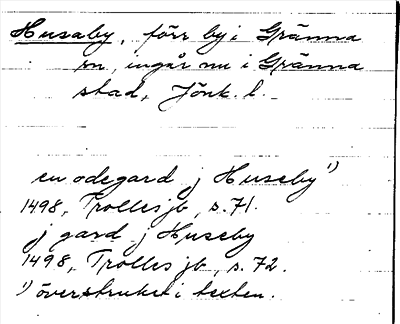 Husaby, förr by i Gränna
sn, ingår nu i Gränna
stad, Jönk. l.
en odegard j Huseby 1)
1498, Trolles jb, s. 71.
j gard j Huseby
1498, Trolles jb, s. 72.
1) överstruket i texten.